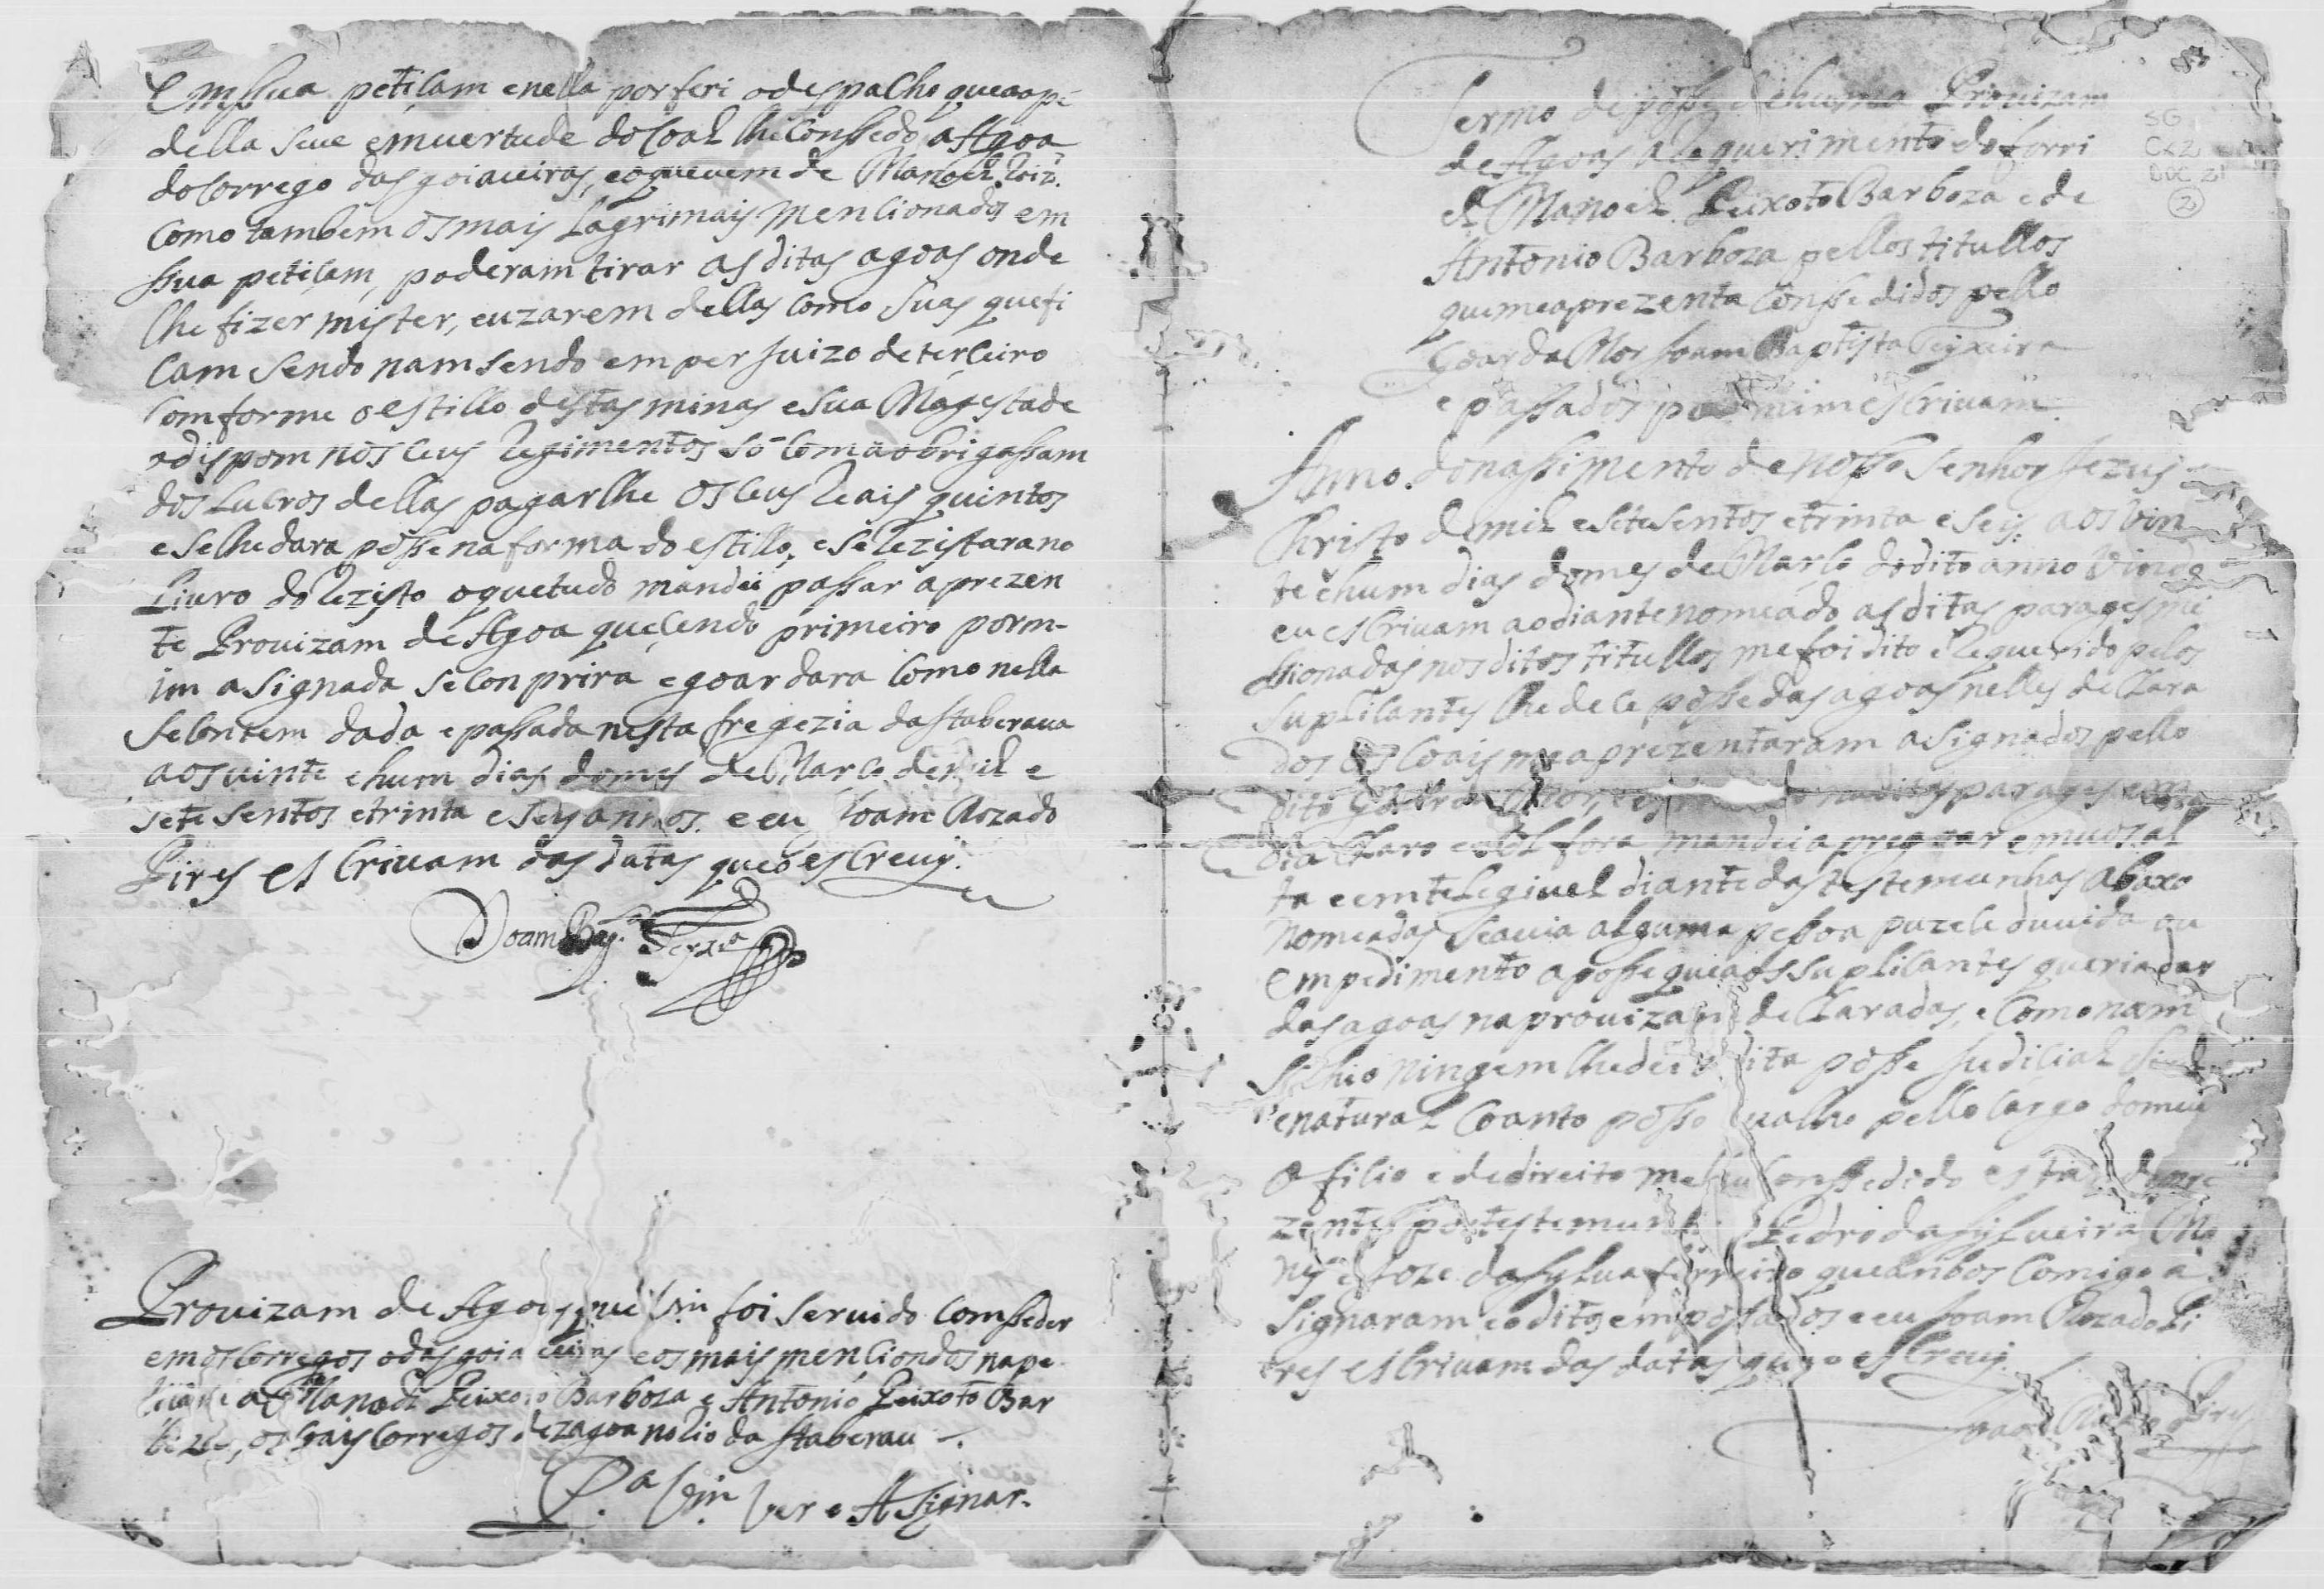 Emssua petiçam enella porferi odespacho queaopé
della seue emuertude do Coal lheConssedo a Agoa
do Corrego das goiaueiras, eoqueuem de Manoel Roiz.
Como tambem os mais Lagrimais mencionados em
ssua petiçam, poderam tirar as ditas agoas onde
lhe fizer mister, euzarem dellas como suas quefi
cam sendo namsendo emperjuizo deterceiro
Comforme oestillo destas minas esua Magestade
odispom nos ceus Regimentos so Com aobrigassam
dos Lucros dellas pagarlhe os ceus Reais quintos
eselhedara posse na forma do estillo, eseRezistara no
Liuro doRezisto oquetudo mandei passar aprezen
te Prouizam de Agoa queçendo primeiro porm-
im asignada seConprira egoardara Como nella
seContem dada epassada nesta fregezia da Itaberaua
aosuinte ehum dias domes de Março demil e
sete sentos etrinta eseis annos. eeu Joam Rozado
Pires esCriuam das datas queoesCreuy.
Joam Bap.ta Teyx.ra
Prouizam de Agoas que Vm foi seruido Comsseder
emosCorregos odasgoiaueiras eosmais menciondos nape
a Manoel Peixoto Barboza e Antonio Peixoto Bar
boza, os Coais Corregos dezagoa noRio da Itaberaua.
P.a Vm Ver e Asignar.
Termo de posse dehuma Prouizam
de Agoas aRequerimento do forri
el Manoel Peixoto Barboza ede
Antonio Barboza pellos titullos
quemeaprezenta Conssedidos pello
Goarda Mor Joam Baptista Teixeira
e passados por mim esCriuam.
Anno. donassimento denosso senhor Jezus
Christo demil esetesentos etrinta eseis. aos Vin
te ehum dias domes de Março dodito anno Vindo
eu esCriuam aodiantenomeado as ditas parages me
ssionadas nos ditos titullos mefoi dito eRequerido pelos
supLicantes lhe dece posse das agoas nelles deClara
dos os Coais meaprezentaram asignados pello
dito Goarda Mor, parages em
dia Claro eSol fora mandei apregoar emuos al
ta eemteLegiuel diante das testemunhas abaxo
Nomeadas seauia alguma pessoa puzece duuida ou
empedimento aposse queaos supLicantes queria dar
das agoas naprouizam deClaradas, eComo nam
sahio ningem lhedei a dita posse Judicial
enatural Coanto posso eualho pello Cargo domeu
ofiçio e dedireito me Conssedido
zentes portestemunhas Pedro da sylueira
e Joze da Sylua ferreira queambos Comigo a
signaram eoditos empossados eeu Joam RozadoPi
res esCriuam das datas queo esCreuy
Joam Rozado Pires
SG
CX 2
DOC 21
2